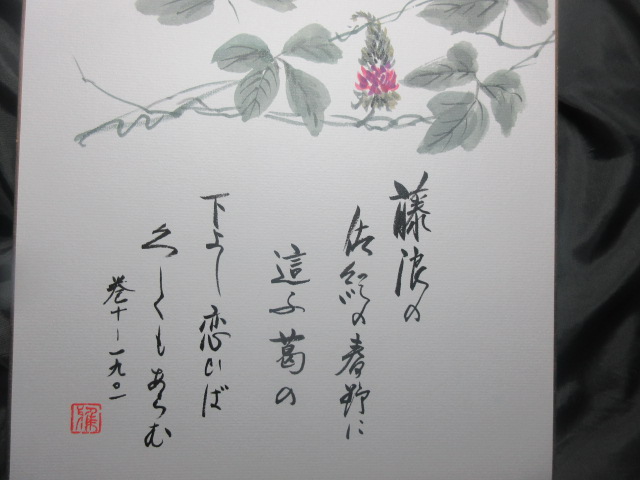 藤浪の
佐紀の春野に
這ふ葛の
下よし恋ひば
久しくもあらむ
巻十-一九〇一